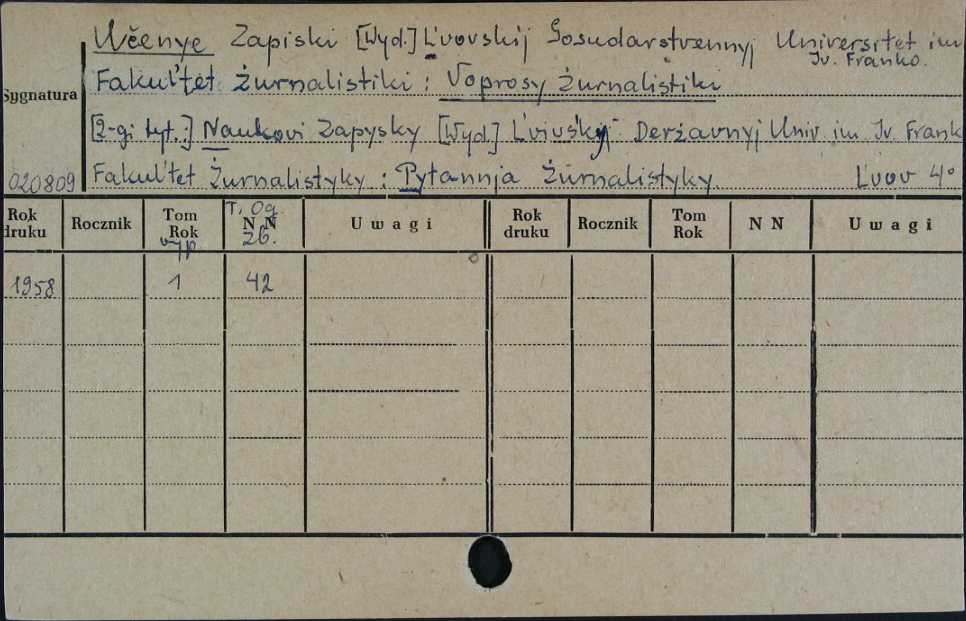 Učenye Zapiski [Wyd.] L'vovskij Gosudarstvennyj Universitet im
Iv. Franko.
Fakul'tet žurnalistiki : Voprosy žurnalistiki
Sygnatura
[2-gi tyt.:] Naukovi Zapysky [Wyd.] L'vivśkyj Deržavnyj Univ. im Iv. Frank
020809 Fakul'tet Žurnalistyky : Pytannja Žurnalistyky. Lvov 4°
Rok druku Rocznik Tom Rok wyp. T. Og. NN zb. Uwagi Rok druku Rocznik Tom Rok NN Uwagi
1958 1 42